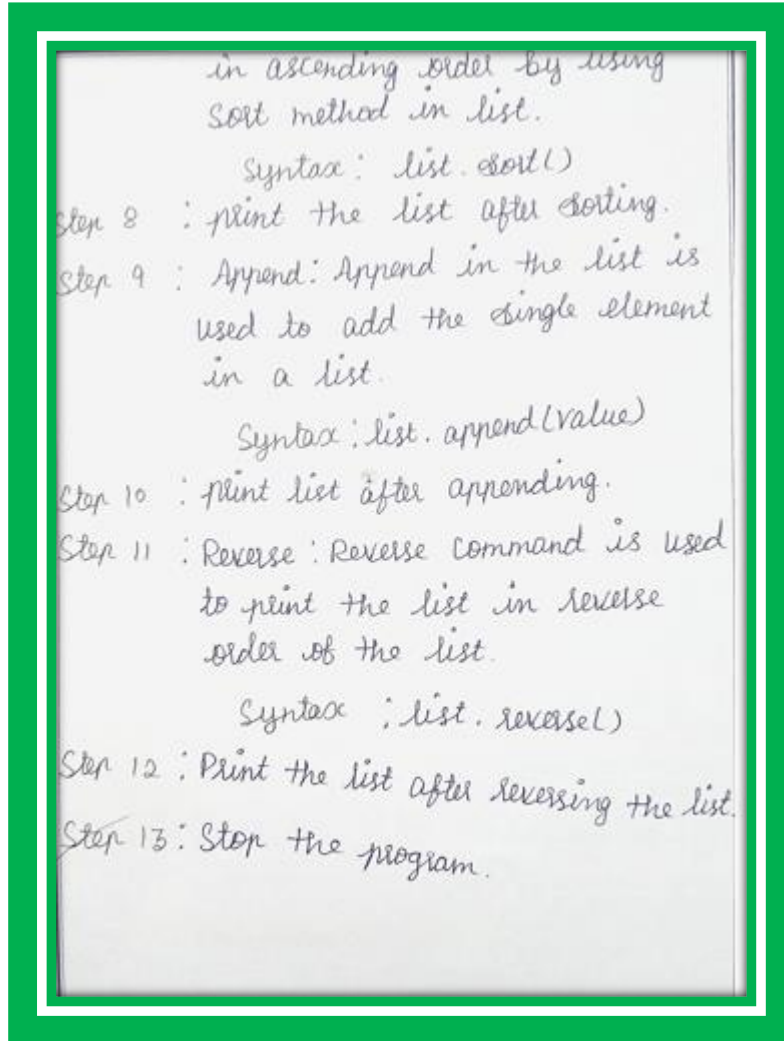 in ascending order by using
sort method in list.
Syntax : list. sort()
Step 8 : print the list after sorting.
Step 9 : Append : Append in the list is
used to add the single element
in a list.
Syntax : list. append(value)
Step 10 : print list after appending.
Step 11 : Reverse : Reverse command is used
to print the list in reverse
order of the list.
Syntax : list. reverse()
Step 12 : Print the list after reversing the list.
Step 13 : Stop the program.